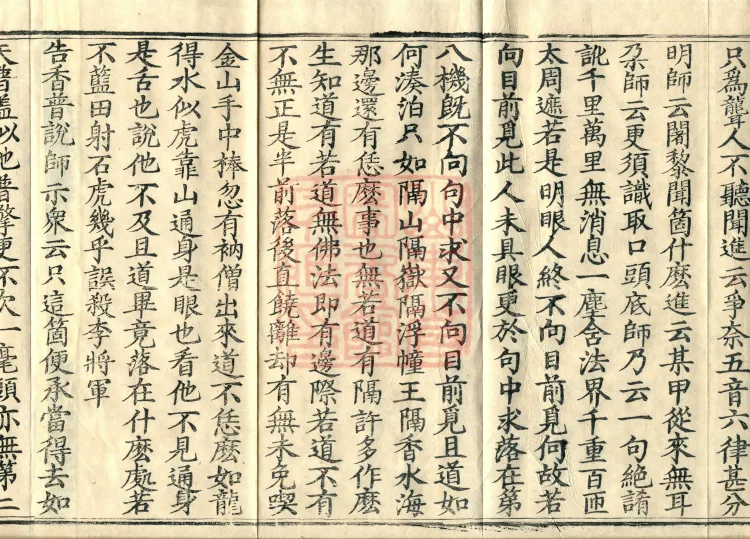 只爲聾人不聽聞進云爭奈五音六律甚分
明師云闍黎聞箇什麽進云某甲從來無耳
朶師云更須識取口頭底師乃云一句絶誵
訛千里萬里無消息一塵含法界千重百匝
太周遮若是明眼人終不向目前覓何故若
向目前覓此人未具眼更於句中求落在第
八機旣不向句中求又不向目前覓且道如
何湊泊只如隔山隔嶽隔浮幢王隔香水海
那邊還有恁麽事也無若道有隔許多作麽
生知道有若道無佛法即有邊際若道不有
不無正是半前落後直饒離却有無未免喫
金山手中棒忽有衲僧出來道不恁麽如龍
得水似虎靠山通身是眼也看他不見通身
是舌也說他不及且道畢竟落在什麽處若
不藍田射石虎幾乎誤殺李將軍
告香普說師示衆云只這箇便承當得去如
天普蓋似地普擎更不欠一毫頭亦無第二